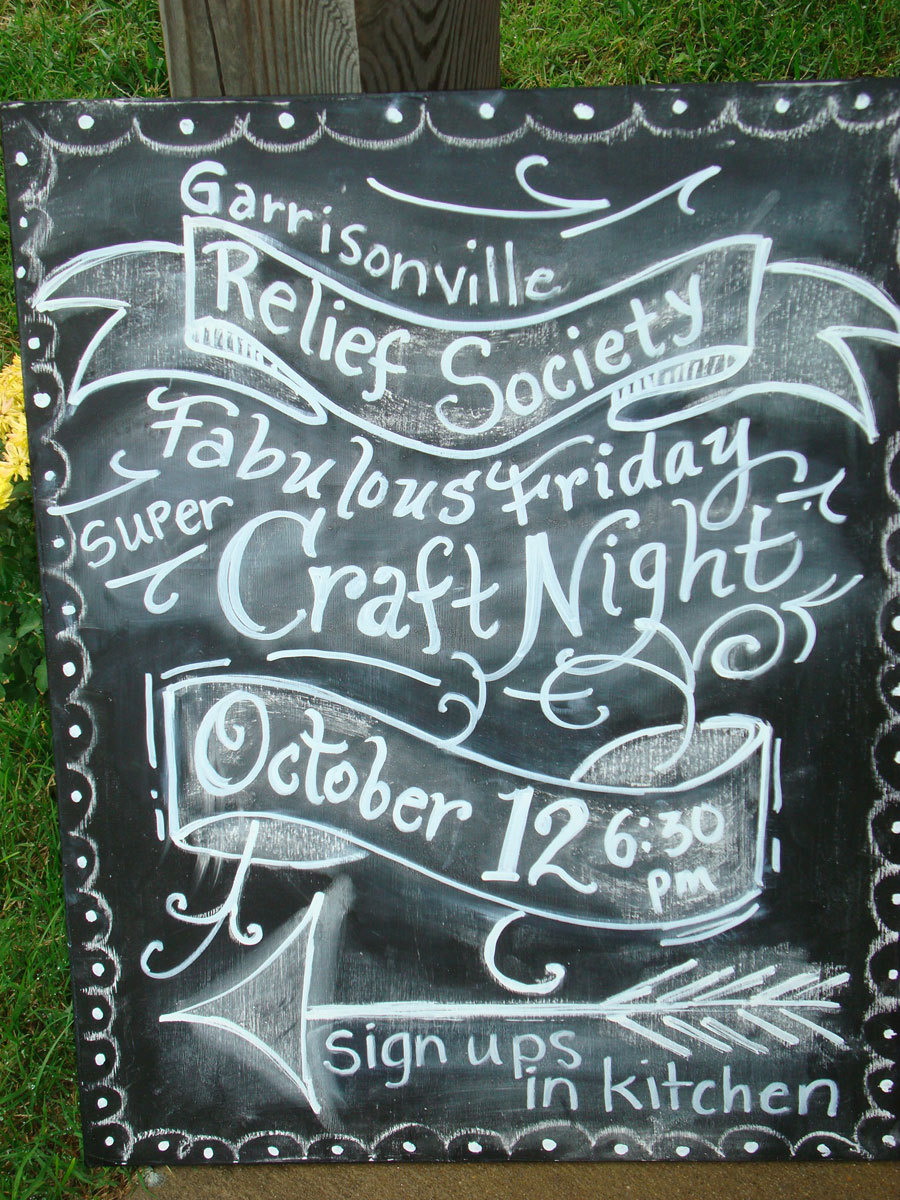 Garrisonville
Relief Society
Fabulous Friday
super
Craft Night
October 12 6:30
pm
sign ups
in kitchen